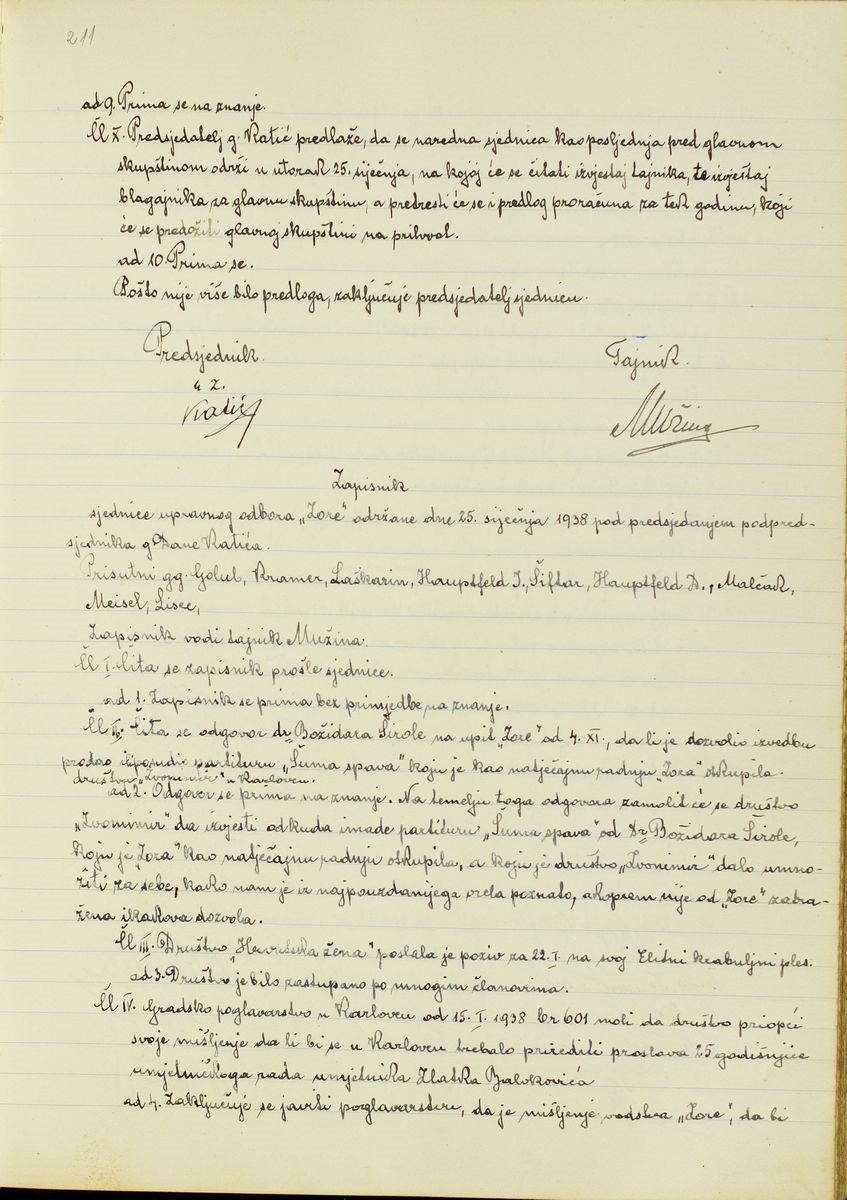 211
ad 9. Prima se na znanje.
Čl X. Predsjedatelj g. Katić predlaže, da se naredna sjednica kao posljednja pred glavnom
skupštinom održi u utorak 25. siječnja, na kojoj će se čitati izvještaj tajnika, te izvještaj
blagajnika za glavnu skupštinu, a pretresti će se i predlog proračuna za tek godinu, koji
će se predožiti glavnoj skupštini na prihvat.
ad 10. Prima se.
Pošto nije više bilo predloga, zaključuje predsjedatelj sjednicu.
Predsjednik. Tajnik.
u z.
Katić Mužina
Zapisnik
sjednice upravnog odbora „Zore" održane dne 25. siječnja 1938 pod predsjedanjem podpred-
sjednika g Dane Katića.
Prisutni gg. Golub, Kramer, Laškarin, Hauptfeld I., Šiftar, Hauptfeld D., Malčak,
Meisel, Lisec,
Zapisnik vodi tajnik Mužina.
Čl I. Čita se zapisnik prošle sjednice.
ad 1. Zapisnik se prima bez primjedbe na znanje.
Čl II. Čita se odgovor dr Božidara Širole na upit „Zore" od 4. XI., da li je dozvolio izvedbu
prodao ili posudio partituru „Šuma spava" koju je kao natječajnu radnju „Zora" otkupila.
društvu „Zvonimir" u Karlovcu.
ad 2. Odgovor se prima na znanje. Na temelju toga odgovora zamolit će se društvo
„Zvonimir" da izvjesti odkuda imade partituru „Šuma spava" od Dr Božidara Širole,
koju je „Zora" kao natječajnu radnju otkupila, a koju je društvo „Zvonimir" dalo umno-
žiti za sebe, kako nam je iz najpouzdanijega vrela poznato, akoprem nije od „Zore" zatra-
žena ikakova dozvola.
Čl III. Društvo „Hrvatska žena" poslala je poziv za 22. I. na svoj Elitni krabuljni ples.
ad 3. Društvo je bilo zastupano po mnogim članovima.
Čl IV. Gradsko poglavarstvo u Karlovcu od 15. I. 1938 br 601 moli da društvo priopći
svoje mišljenje da li bi se u Karlovcu trebalo prirediti proslava 25 godišnjice
umjetničkoga rada umjetnika Zlatka Balokovića
ad 4. Zaključuje se javiti poglavarstvu, da je mišljenje vodstva „Zore", da bi